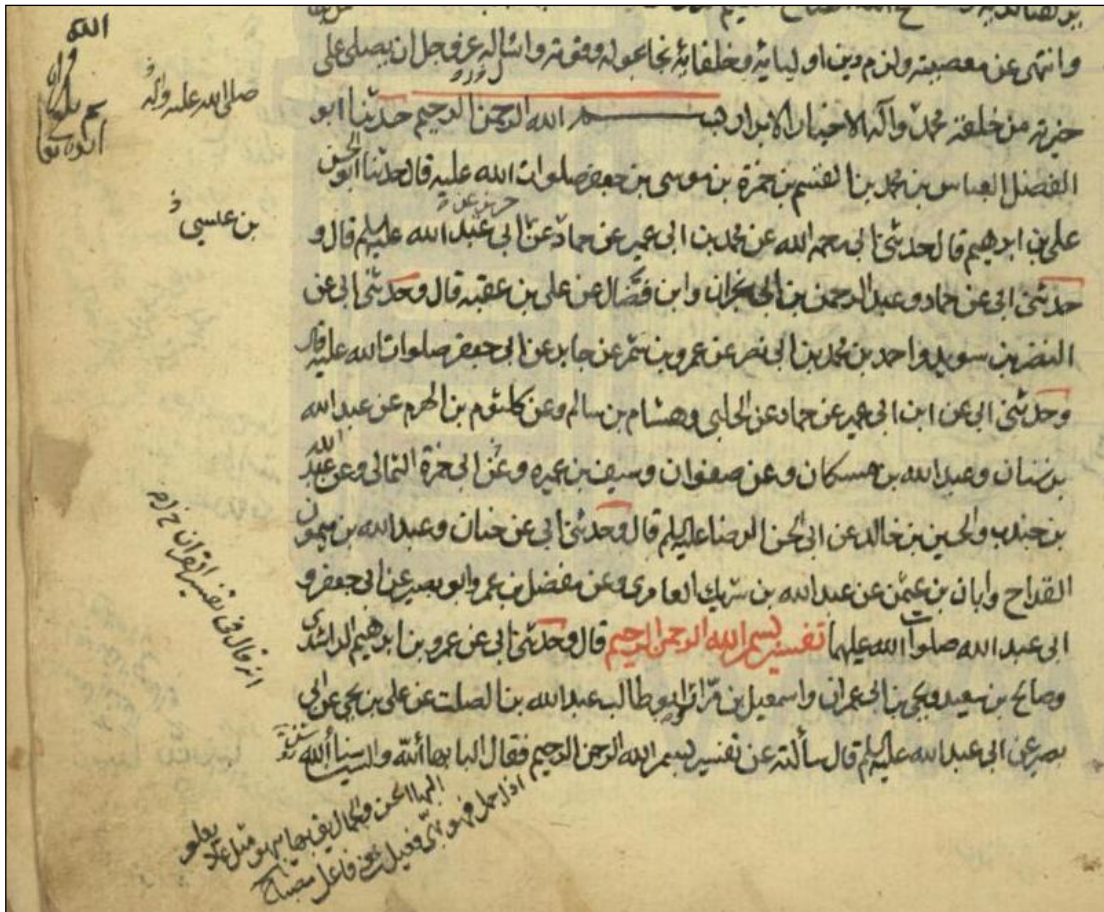 وانتهى عن معصيته ولزم دين اوليائه وخلفائه نجا بحوله وقوته واسأله عز وجل ان يصلى على
خيرته من خلقه محمد وآله الاخيار الابرار بسم الله الرحمن الرحيم حدثنا ابو
الفضل العباس بن محمد بن القسم بن حمزة بن موسى بن جعفر صلوات الله عليه قال حدثنا ابو الحسن
على بن ابرهيم قال حدثنى ابى رحمه الله عن محمد بن ابى عمير عن حماد عن ابى عبد الله عليه السلم قال و
حدثنى ابى عن حماد و عبد الرحمن بن ابى نجران وابن فضال عن على بن عقبه قال وحدثنى ابى عن
النضر بن سويد واحمد بن محمد بن ابى نصر عن عمرو بن شمر عن جابر عن ابى جعفر صلوات الله عليه قال
وحدثنى ابى عن ابن ابى عمير عن حماد عن الحلبى وهشام بن سالم وعن كلثوم بن الهرم عن عبد الله
بن سنان وعبد الله بن مسكان وعن صفوان وسيف بن عميره وعن ابى حمزة الثمالى وعن عبد الله
بن جندب والحسين بن خالد عن ابى الحسن الرضا عليه السلم قال وحدثنى ابى عن حنان وعبد الله بن ميمون
القداح وابان بن عثمن عن عبد الله بن شريك العامرى وعن مفضل بن عمر وابو بصير عن ابى جعفر و
ابى عبد الله صلوات الله عليهما تفسير بسم الله الرحمن الرحيم قال وحدثنى ابى عن عمرو بن ابرهيم الراشدى
وصالح بن سعيد ويحيى بن ابى عمران واسمعيل بن مرار وابو طالب عبد الله بن الصلت عن على بن يحيى عن ابى
بصير عن ابى عبد الله عليه السلم قال سألته عن تفسير بسم الله الرحمن الرحيم فقال البا بهاء الله والسين سناء الله
الله
صلى الله عليه وآله
بن عيسى
انه قال فى تفسير القران
البها الحسن والجمال